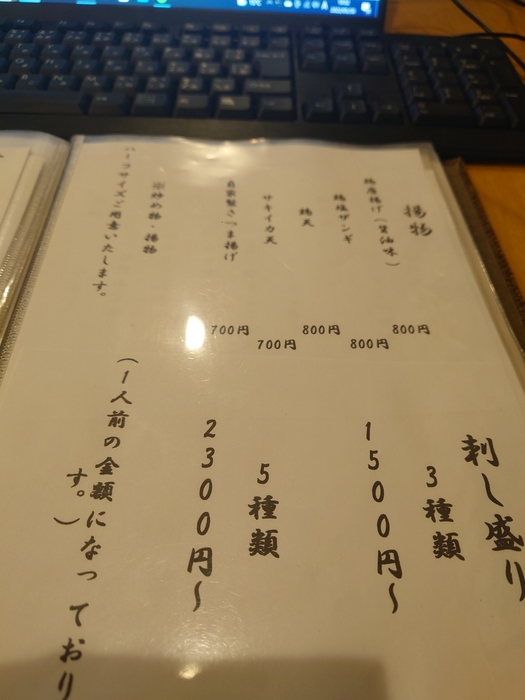 揚物
鶏唐揚げ(醤油味)
800円
鶏塩ザンギ
800円
鶏天
800円
サキイカ天
700円
自家製さつま揚げ
700円
※炒め物・揚物
ハーフサイズご用意いたします。
刺し盛り
3種類
1500円~
5種類
2300円~
(1人前の金額になっており
す。)